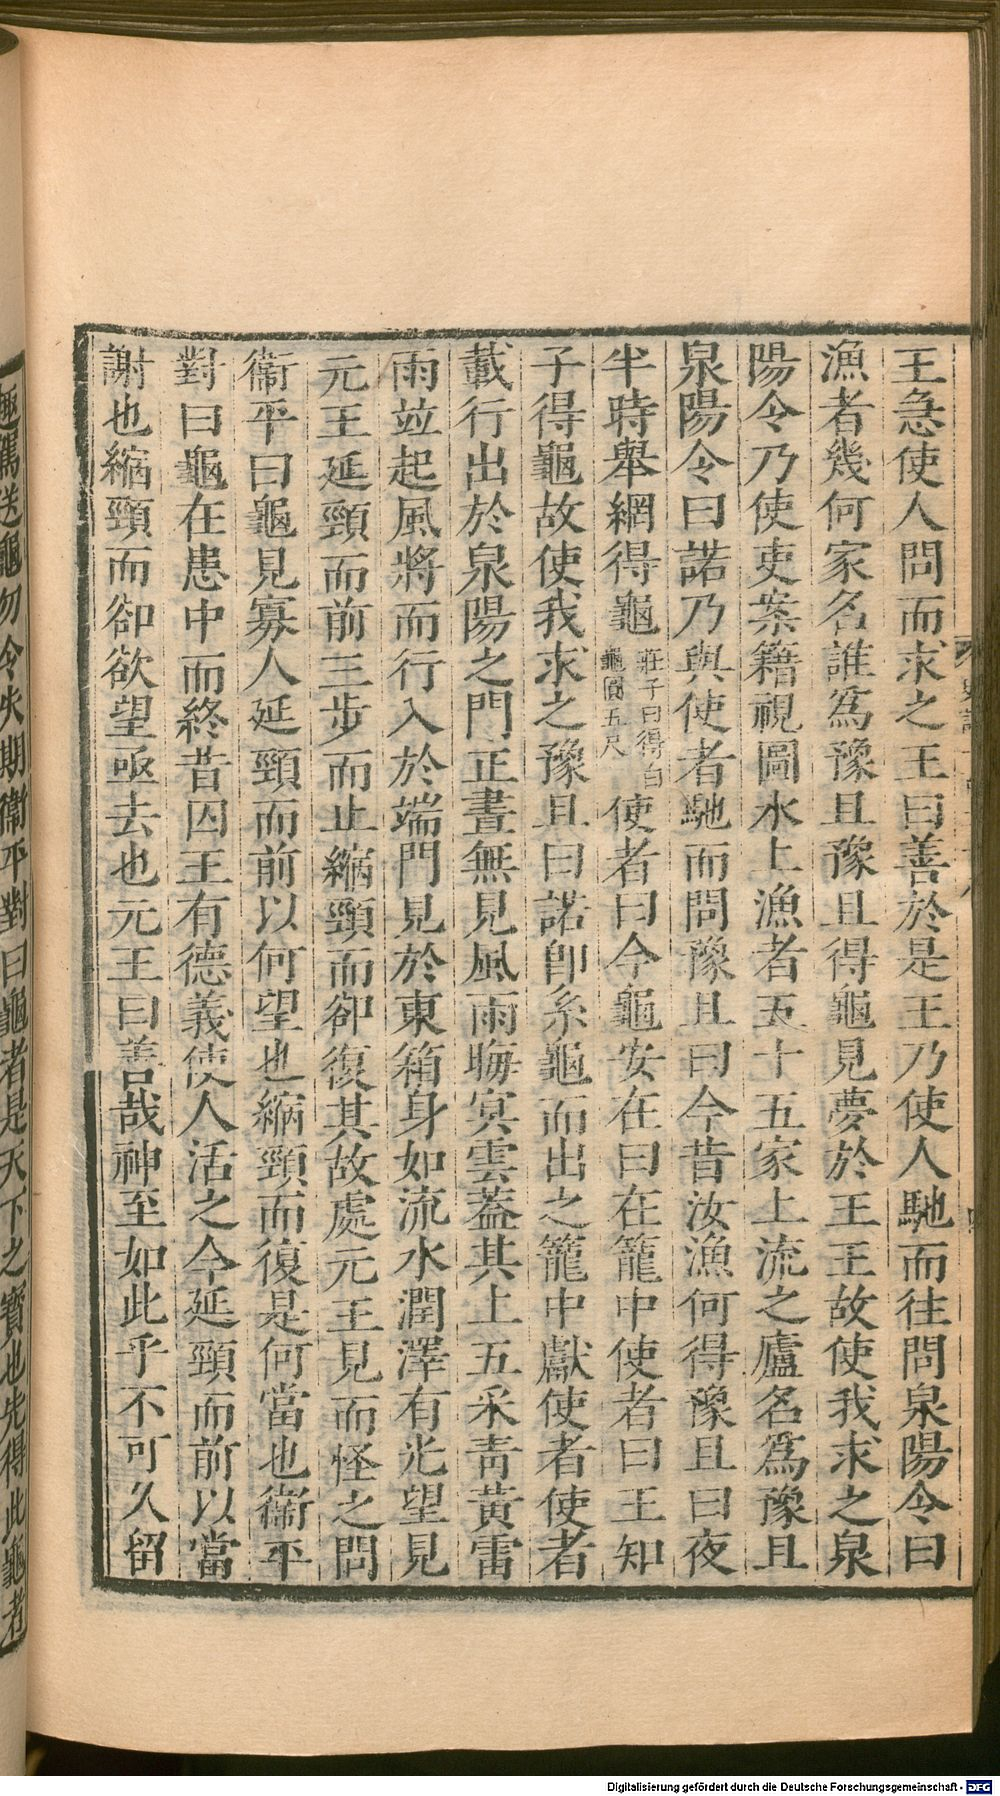 王急使人問而求之王曰善於是王乃使人馳而往問泉陽令曰
漁者幾何家名誰爲豫且豫且得龜見夢於王王故使我求之泉
陽令乃使吏案籍視圖水上漁者五十五家上流之廬名爲豫且
泉陽令曰諾乃與使者馳而問豫且曰今昔汝漁何得豫且曰夜
半時舉網得龜莊子曰得白龜圓五尺使者曰今龜安在曰在籠中使者曰王知
子得龜故使我求之豫且曰諾卽系龜而出之籠中獻使者使者
載行出於泉陽之門正晝無見風雨晦冥雲蓋其上五采靑黃雷
雨竝起風將而行入於端門見於東箱身如流水潤澤有光望見
元王延頸而前三步而止縮頸而卻復其故處元王見而怪之問
衞平曰龜見寡人延頸而前以何望也縮頸而復是何當也衞平
對曰龜在患中而終昔囚王有德義使人活之今延頸而前以當
謝也縮頸而卻欲望亟去也元王曰善哉神至如此乎不可久留
趣駕送龜勿令失期衞平對曰龜者是天下之寶也先得此龜者
Digitalisierung gefördert durch die Deutsche Forschungsgemeinschaft - DFG